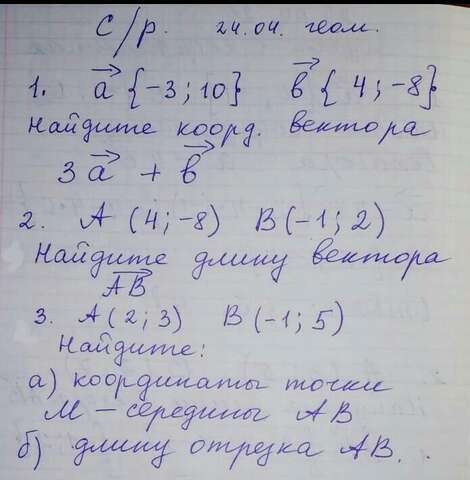 С/р. 24.04. геом.
1. a⃗ {-3; 10} b⃗ {4; -8}
Найдите коорд. вектора
3a⃗ + b⃗
2. A (4; -8) B (-1; 2)
Найдите длину вектора
A⃗B⃗
3. A (2; 3) B (-1; 5)
Найдите:
а) координаты точки
M — середины AB
б) длину отрезка AB.